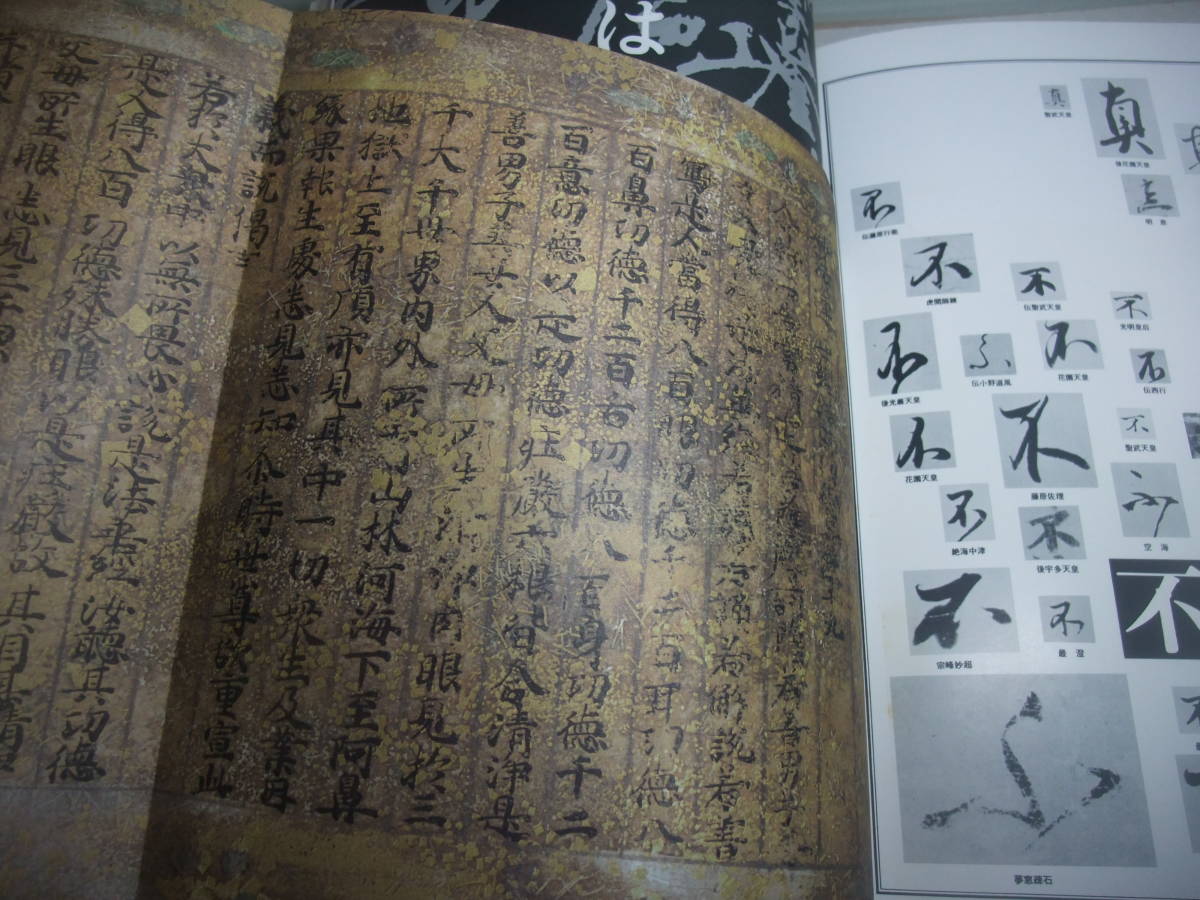 は
若解說若書
寫是人當得八百眼功德千二百耳功德八
百鼻功德千二百舌功德八百身功德千二
百意功德以是功德莊嚴六根皆令清淨是
善男子善女人父母所生清淨肉眼見於三
千大千世界內外所有山林河海下至阿鼻
地獄上至有頂亦見其中一切眾生及業因
緣果報生處悉見悉知尒時世尊欲重宣此
義而說偈言
若於大眾中以無所畏心說是法華經汝聽其功德
是人得八百功德殊勝眼以是莊嚴故其目甚清
父母所生眼悉見三千界
真
聖武天皇
真
後花園天皇
真
明恵
不
伝藤原行能
不
虎関師錬
不
伝聖武天皇
不
光明皇后
不
後光厳天皇
不
伝小野道風
不
花園天皇
不
伝西行
不
花園天皇
不
藤原佐理
不
聖武天皇
不
絶海中津
不
後宇多天皇
不
空海
不
宗峰妙超
不
最澄
不
不
夢窓疎石